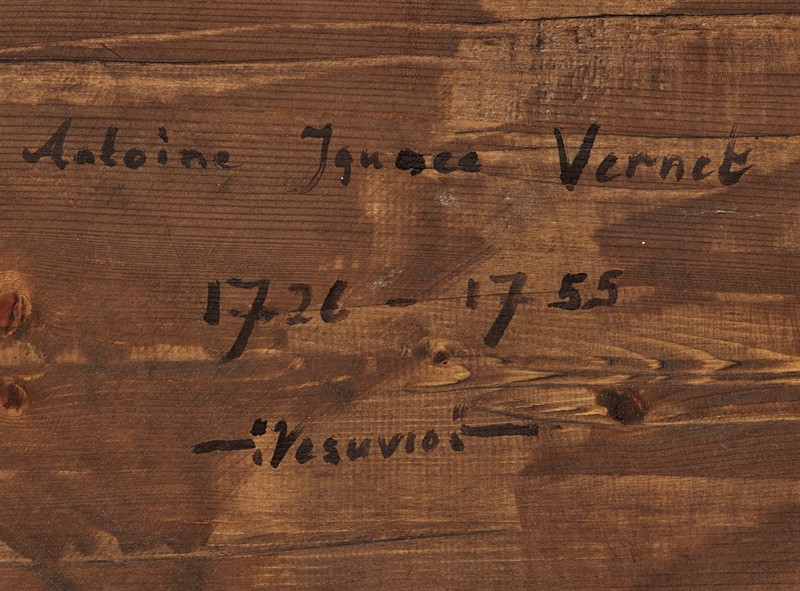 Antoine Ignace Vernet
1726 - 1755
— "Vesuvio" —